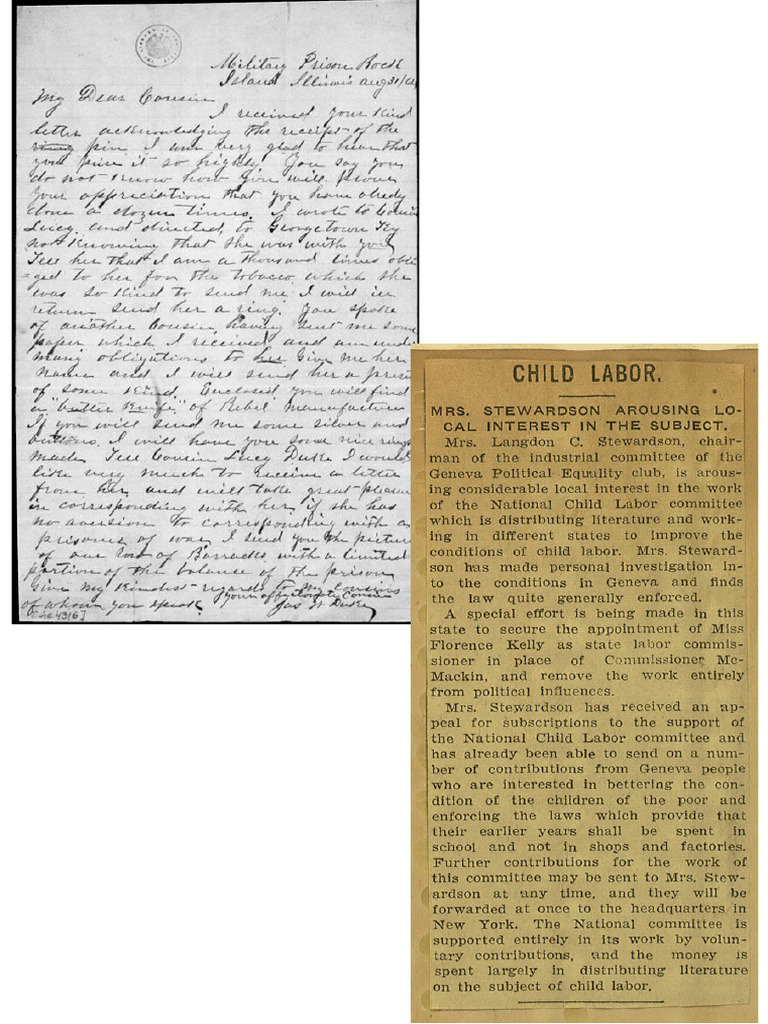 Military Prison Rock
Island Illinois Aug 31/64
My Dear Cousin
I received your kind
letter acknowledging the receipt of the
ring pin I am very glad to hear that
you prize it so highly You say you
do not know how you will prove
your appreciation that you have alredy
done a dozen times. I wrote to Cousin
Lucy and directed to Georgetown Ky
not knowing that she was with you
Tell her that I am a thousand times obli
=ged to her for the tobacco which she
was so kind to send me, I will in
return send her a ring. You spoke
of another Cousin, having sent me some
paper which I received and am under
many obligations to her Give me her
name and I will send her a present
of some kind. Enclosed you will find
a "butter knife" of Rebel manufacture
If you will send me some silver and
buttons. I will have you some nice rings
made Tell Cousin Lucy Duke I would
like very much to receive a letter
from her and will take great pleasure
in corresponding with her if she has
no aversion to corresponding with a
prisoner of war I send you the picture
of our row of Barracks with a limited
portion of the balance of the prison
Give my kindest regards to my cousins
of whom you speak. Your affectionate Cousin
Jas W Duke
CHILD LABOR.
MRS. STEWARDSON AROUSING LO-
CAL INTEREST IN THE SUBJECT.
Mrs. Langdon C. Stewardson, chair-
man of the industrial committee of the
Geneva Political Equality club, is arous-
ing considerable local interest in the work
of the National Child Labor committee
which is distributing literature and work-
ing in different states to improve the
conditions of child labor. Mrs. Steward-
son has made personal investigation in-
to the conditions in Geneva and finds
the law quite generally enforced.
A special effort is being made in this
state to secure the appointment of Miss
Florence Kelly as state labor commis-
sioner in place of Commissioner Mc-
Mackin, and remove the work entirely
from political influences.
Mrs. Stewardson has received an ap-
peal for subscriptions to the support of
the National Child Labor committee and
has already been able to send on a num-
ber of contributions from Geneva people
who are interested in bettering the con-
dition of the children of the poor and
enforcing the laws which provide that
their earlier years shall be spent in
school and not in shops and factories.
Further contributions for the work of
this committee may be sent to Mrs. Stew-
ardson at any time, and they will be
forwarded at once to the headquarters in
New York. The National committee is
supported entirely in its work by volun-
tary contributions, and the money is
spent largely in distributing literature
on the subject of child labor.